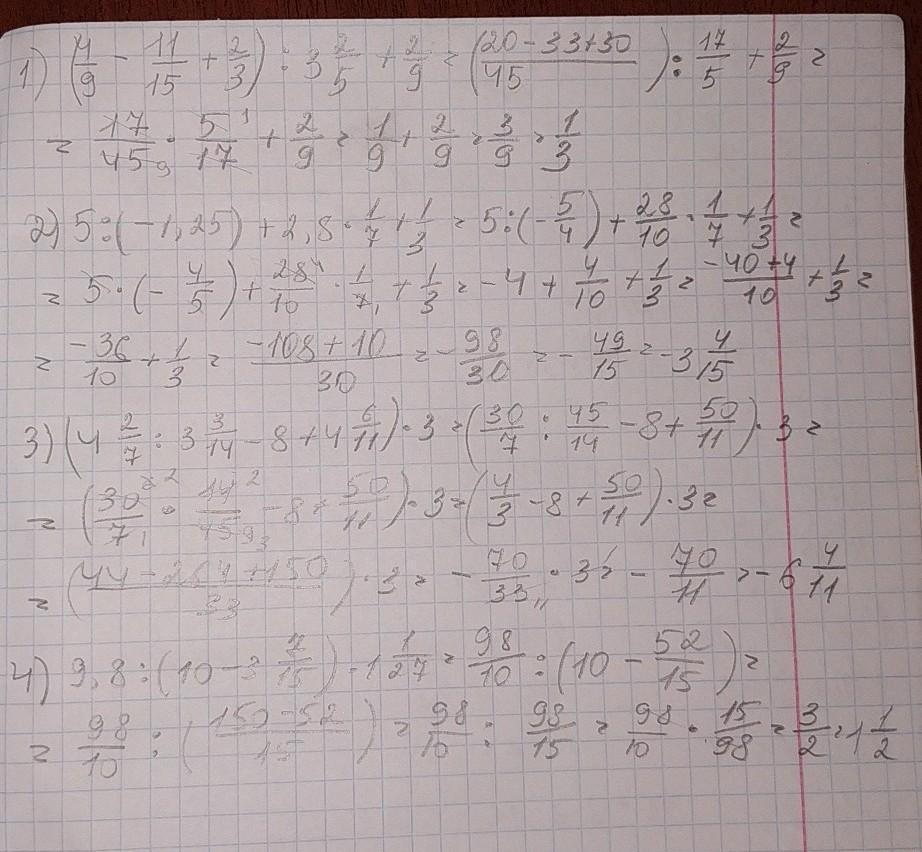 1) (4/9 - 11/15 + 2/3) : 3 2/5 + 2/9 = ((20 - 33 + 30)/45) : 17/5 + 2/9 =
= 17/45 9 · 5/17 1 + 2/9 = 1/9 + 2/9 = 3/9 = 1/3
2) 5 : (-1,25) + 2,8 · 1/7 + 1/3 = 5 : (-5/4) + 28/10 · 1/7 + 1/3 =
= 5 · (-4/5) + 28 4/10 · 1/7 1 + 1/3 = -4 + 4/10 + 1/3 = (-40 + 4)/10 + 1/3 =
= -36/10 + 1/3 = (-108 + 10)/30 = -98/30 = -49/15 = -3 4/15
3) (4 2/7 : 3 3/14 - 8 + 4 6/11) · 3 = (30/7 : 45/14 - 8 + 50/11) · 3 =
= (30 2/7 1 · 14 2/45 3 - 8 + 50/11) · 3 = (4/3 - 8 + 50/11) · 3 =
= ((44 - 264 + 150)/33) · 3 = -70/33 11 · 3 = -70/11 = -6 4/11
4) 9,8 : (10 - 3 7/15) - 1 1/27 = 98/10 : (10 - 52/15) =
= 98/10 : ((150 - 52)/15) = 98/10 : 98/15 = 98/10 · 15/98 = 3/2 = 1 1/2